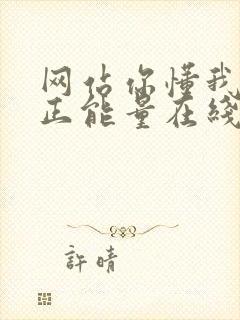 网站你懂我
正能量在线
許晴